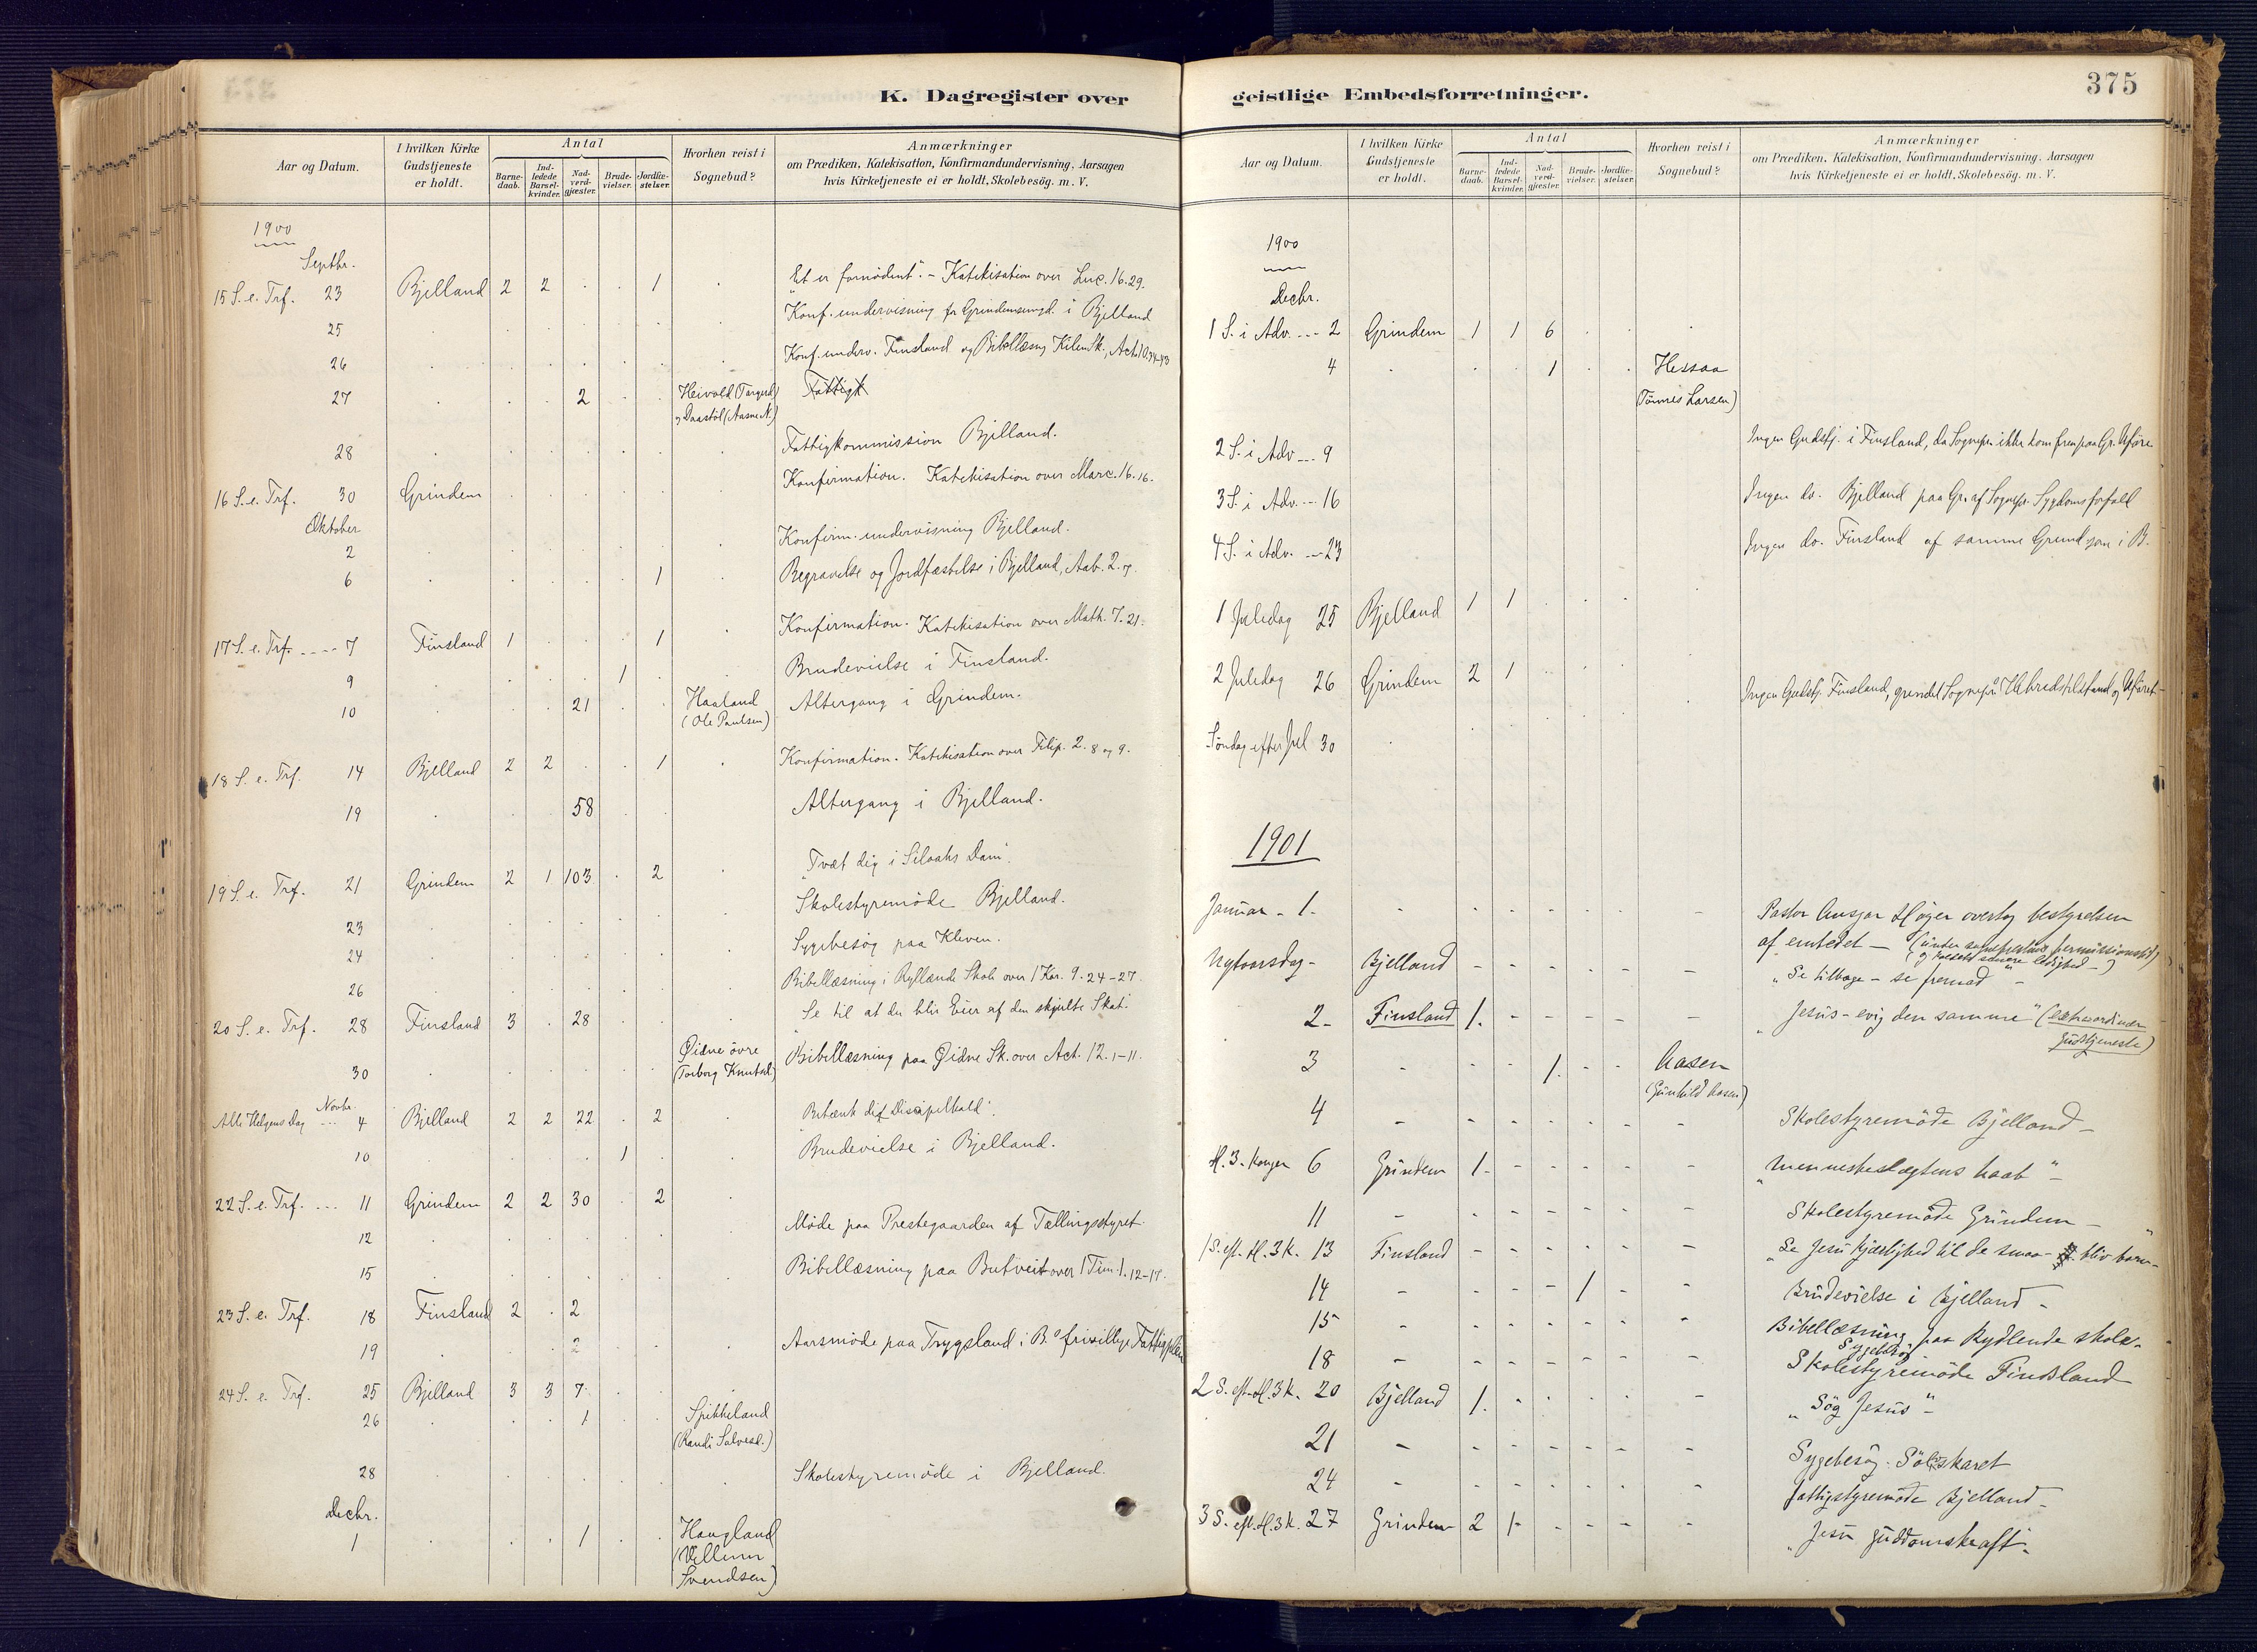 K. Dagregister over
Aar og Datum.
I hvilken Kirke Gudstjeneste er holdt.
Antal
Barnedaab.
Indledede Barselkvinder.
Nadverdgjæster.
Brudevielser.
Jordfæstelser.
Hvorhen reist i Sognebud?
Anmærkninger
om Prædiken, Katekisation, Konfirmandundervisning, Aarsagen
hvis Kirketjeneste ei er holdt, Skolebesög. m. V.
1900
Septbr.
15 S. e. Trf. 23 Bjelland 2 2 . . 1 . "Et er fornødent". - Katekisation over Luc. 16.29.
25 Konf. undervisning for Grindemsungd. i Bjelland
26 Konf. underv. Finsland og Bibellæsng Kilen Sk., Act. 10.34-43
27 2 Heivold (Torgerd) og Daastöl (Aasne N.) Fattigk
28 Fattigkommission Bjelland.
16 S. e. Trf. 30 Grindem Konfirmation. Katekisation over Marc. 16.16.
Oktober
2 Konfirm. undervisning Bjelland.
6 1 Begravelse og Jordfæstelse i Bjelland, Aab. 2.
17 S. e. Trf. 7 Finsland 1 1 Konfirmation. Katekisation over Math. 7.21.
9 1 Brudevielse i Finsland.
10 21 Haaland (Ole Paulsen) Altergang i Grindem.
18 S. e. Trf. 14 Bjelland 2 2 1 Konfirmation. Katekisation over Filip. 2. 8 og 9.
19 58 Altergang i Bjelland.
19 S. e. Trf. 21 Grindem 2 1 103 2 "Tvæt dig i Siloahs Dam".
23 Skolestyremöde Bjelland.
24 Sygebesög paa Kleven.
26 Bibellæsning i Ryllænde Skole over 1 Kor. 9. 24-27.
20 S. e. Trf. 28 Finsland 3 . 28 Se til at du blir Eier af den skjulte Skat.
30 Øidne övre (Torborg Knutsd.) Bibellæsning paa Øidne Sk. over Act. 12. 1-11.
Novbr.
Alle Helgens Dag 4 Bjelland 2 2 22 2 "Betænk dit Discipelkald".
10 1 Brudevielse i Bjelland.
22 S. e. Trf. 11 Grindem 2 2 30 2
12 Møde paa Prestegaarden af Tællingsstyret.
15 Bibellæsning paa Butveit over 1 Tim. 1. 12-17.
23 S. e. Trf. 18 Finsland 2 . 2
19 2 Aarsmöde paa Trygsland i B.s frivillige Fattigplein
24 S. e. Trf. 25 Bjelland 3 3 7
26 1 Spikkeland (Randi Salvesd.)
28 Skolestyremöde i Bjelland.
Decbr.
1 1 Haugland (Villum Svendsen)
375
geistlige Embedsforretninger.
Aar og Datum.
I hvilken Kirke Gudstjeneste er holdt.
Antal
Barnedaab.
Indledede Barselkvinder.
Nadverdgjæster.
Brudevielser.
Jordfæstelser.
Hvorhen reist i Sognebud?
Anmærkninger
om Prædiken, Katekisation, Konfirmandundervisning, Aarsagen
hvis Kirketjeneste ei er holdt, Skolebesög. m. V.
1900
Decbr.
1 S. i Adv. 2 Grindem 1 1 6
4 1 Hessaa (Tönnes Larsen)
2 S. i Adv. 9 Ingen Gudstj. i Finsland, da Sognepr. ikke kom frem paa Gr. Uföre
3 S. i Adv. 16 Ingen do. Bjelland paa Gr. af Sognepr. Sygdomsforfald
4 S. i Adv. 23 Ingen do. Finsland af samme Grund som i B.
1 Juledag 25 Bjelland 1 1
2 Juledag 26 Grindem 2 1
Söndag efter Jul 30 Ingen Gudstj. Finsland, grundet Sognepr.s Helbredstilstand og Uföret
1901
Januar - 1. Pastor Ansgar Höyer overtog bestyrelsen
af embedet - (under sogneprestens permissionstid)
(og mulig senere ledighed -)
Nytaarsdag - Bjelland "Se tilbage - se fremad"
2 - Finsland 1. "Jesus - evig den samme" (extraordinær Gudstjeneste)
3 1. Aasen (Gunhild Aasen)
4 Skolestyremöde Bjelland -
H. 3. Konger 6 Grindem 1. "Menneskeslægtens haab" -
11 Skolestyremöde Grindem -
1 S. eft. H. 3 K. 13 Finsland "Se Jesu Kjærlighed til de smaa - bliv barn -"
14 1 Brudevielse i Bjelland -
15 Bibellæsning paa Rydlende skole -
Sygebesög
18 Skolestyremöde Finsland
2 S. eft. H. 3 K. 20 Bjelland 1. "Søg Jesus" -
21 Sygebesög. Sölvskaret
24 Fattigstyremöde Bjelland -
3 S. eft. H. 3 K. 27 Grindem 2 1 "Jesu guddomskraft" -